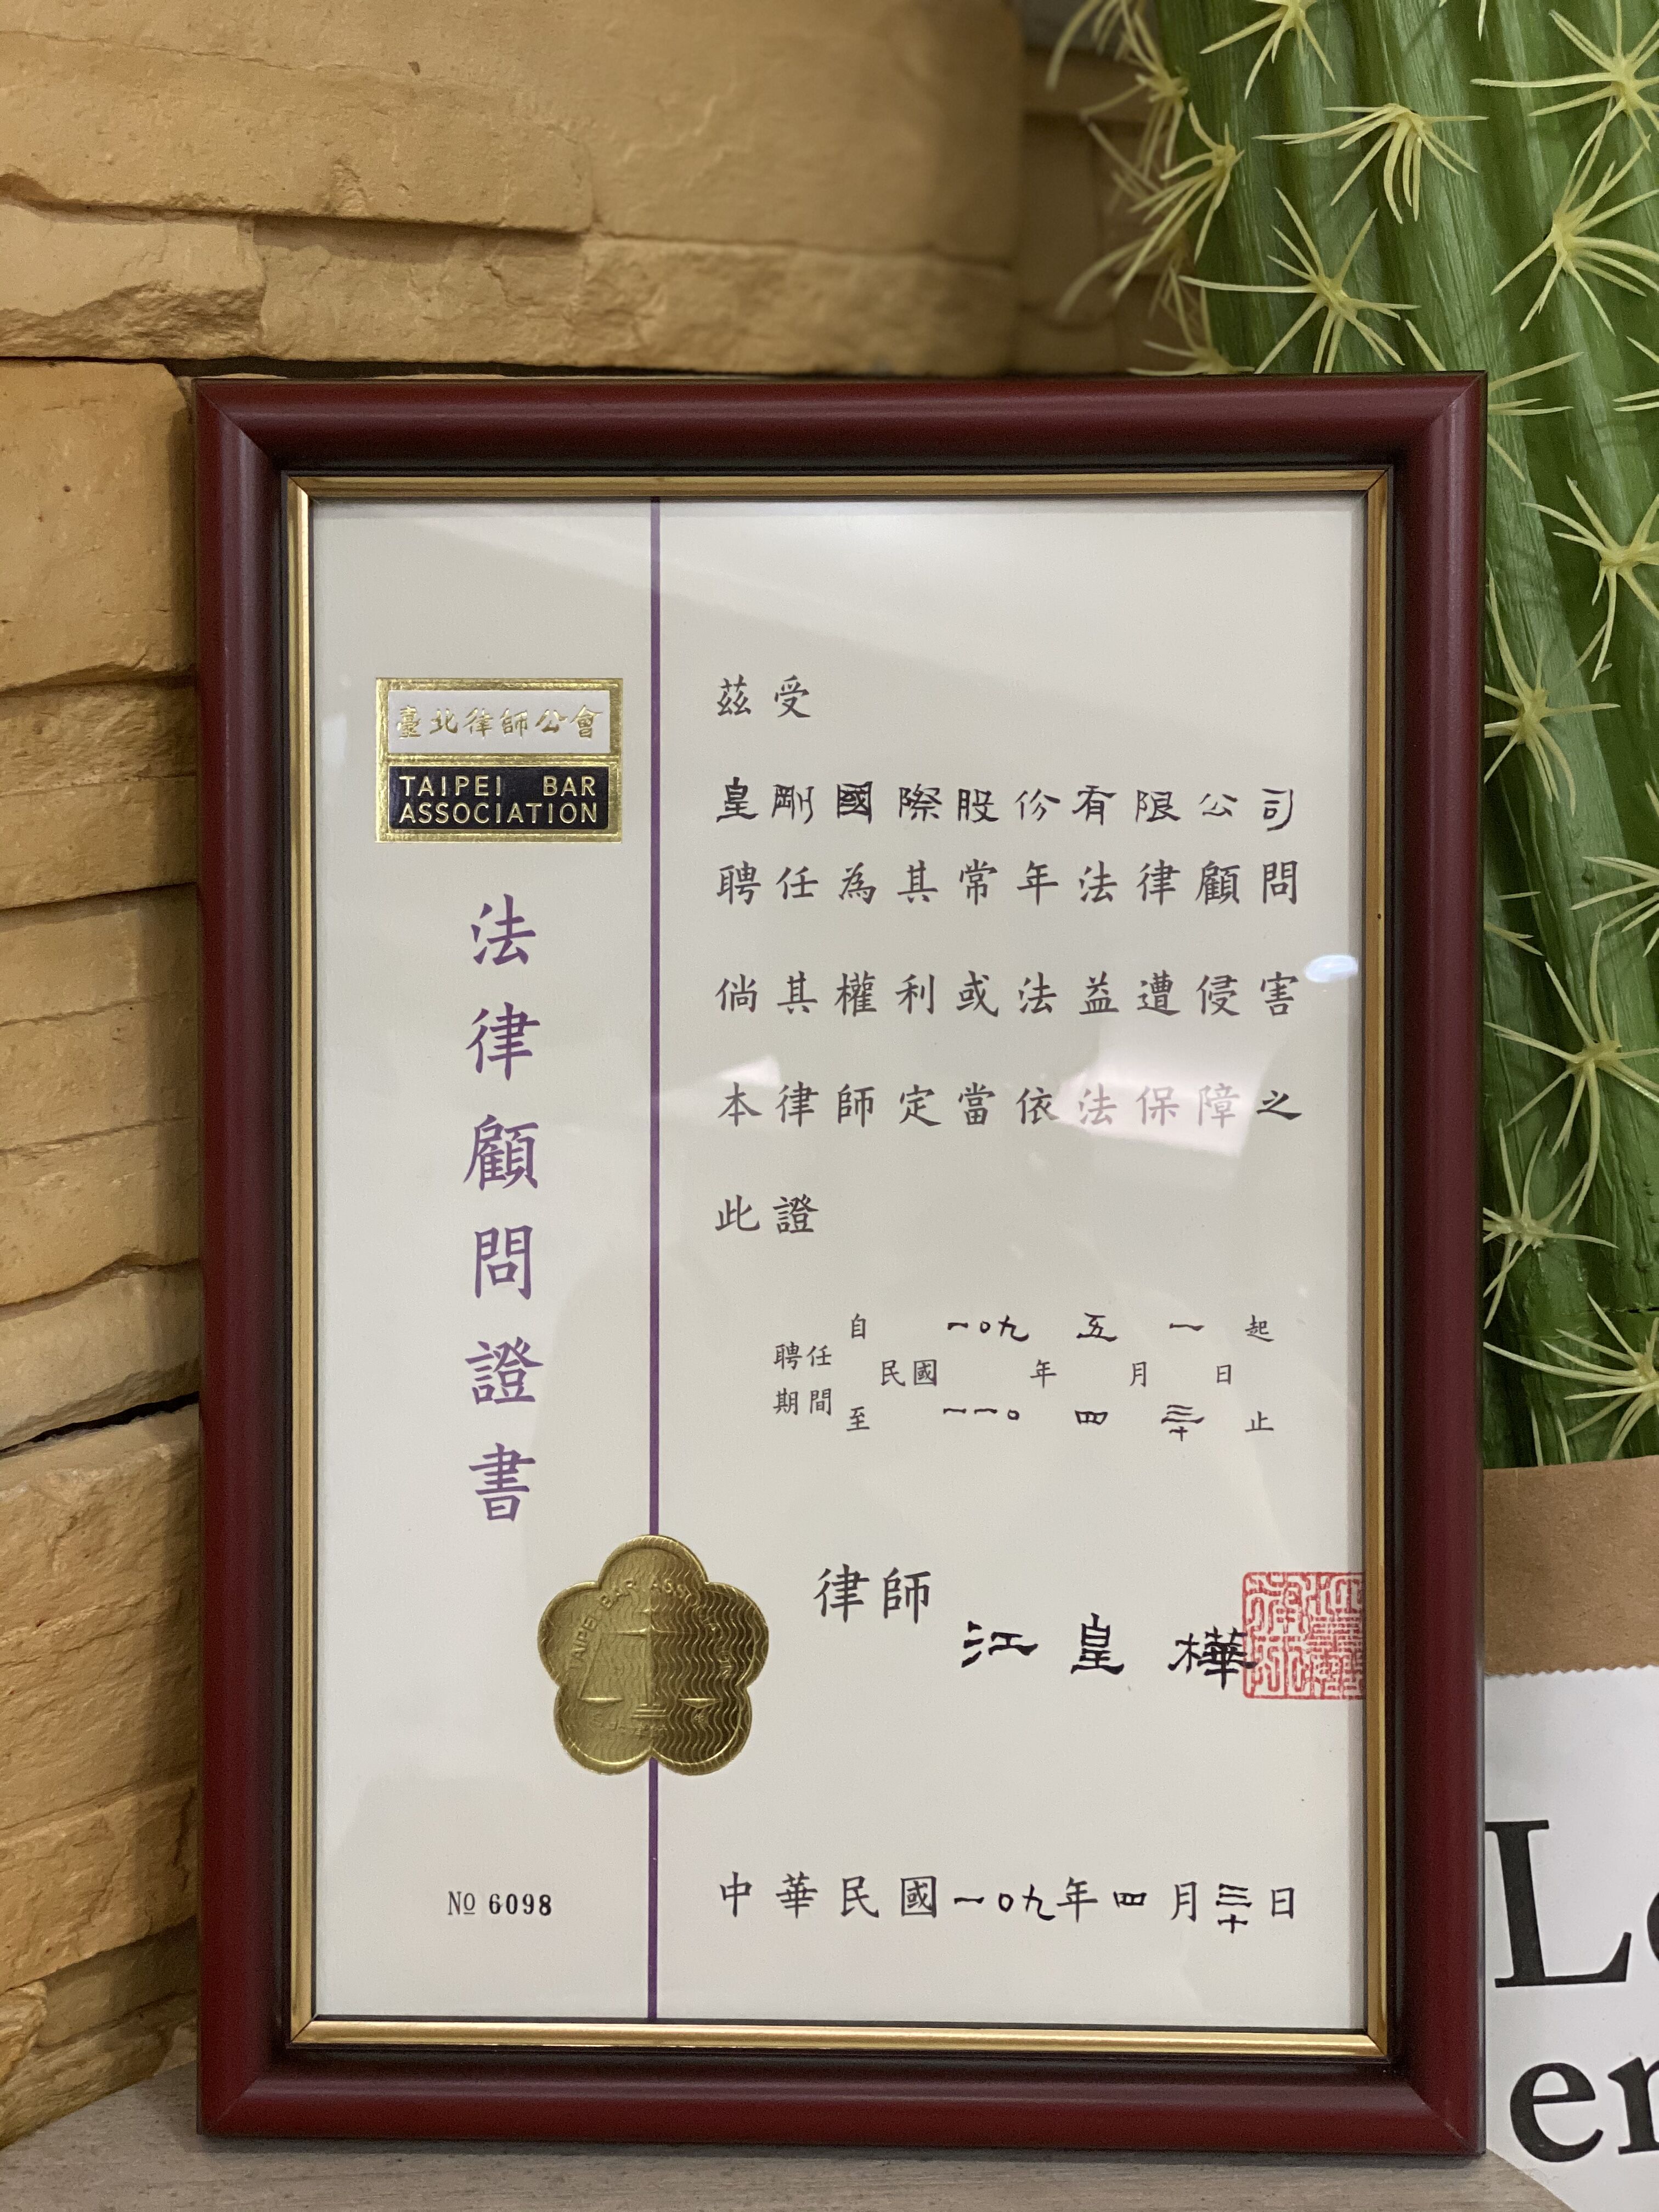 臺北律師公會
TAIPEI BAR
ASSOCIATION
法律顧問證書
茲受
皇剛國際股份有限公司
聘任為其常年法律顧問
倘其權利或法益遭侵害
本律師定當依法保障之
此證
聘任期間
自 一〇九 五 一 起
民國 年 月 日
至 一一〇 四 三十 止
律師 江皇樺
TAIPEI BAR ASSOCIATION
№ 6098
中華民國一〇九年四月三十日